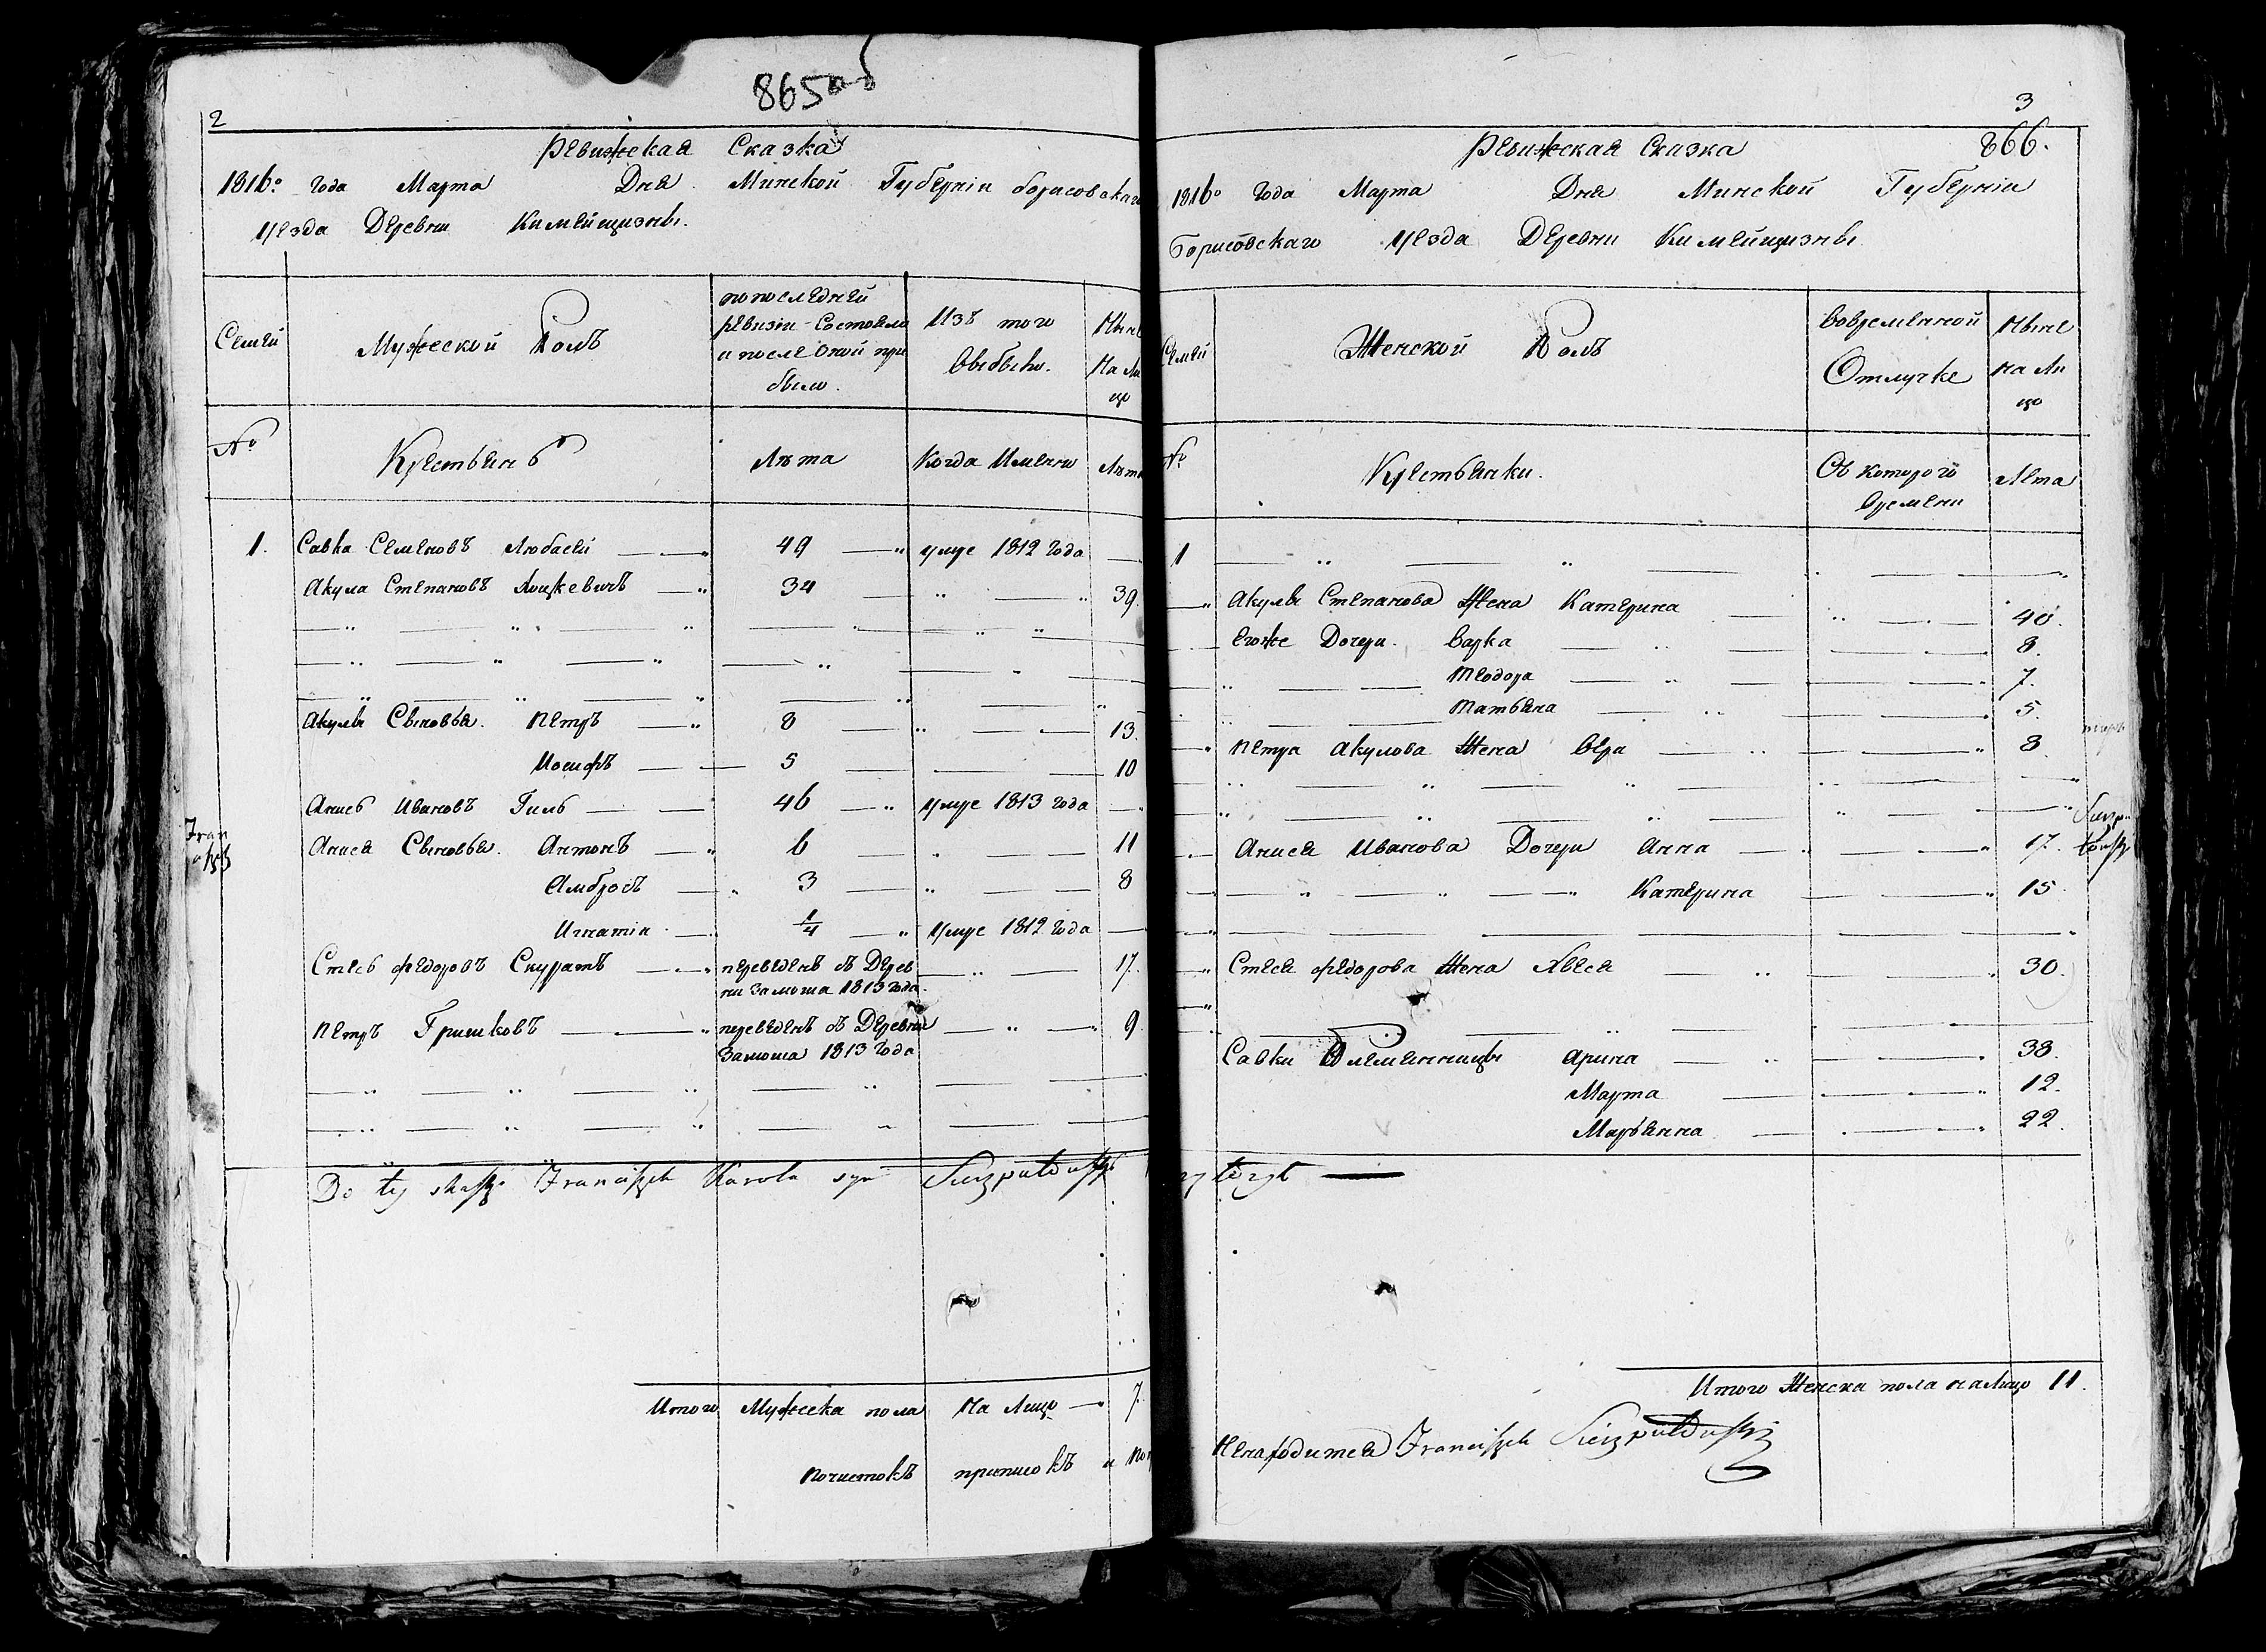 865 об
2
Ревижская Сказка
1816º года Марта Дня Минской Губерніи борисовскаго
уезда Деревни Кимейщизны.
Семей
Мужеской Полъ
по последней
ревизіи Состояло
и после оной при
было.
Изъ того
выбыло.
Ныне
На Ли
цо
№
Крестьянъ
Лѣта
Когда Имянно
Лѣта
1. Савка Семеновъ Любаей 49 умре 1812 года
Акула Степановъ 34 39.
Акулы Сыновья. Петръ 8 13.
Иосифъ 5 10
Анисъ Ивановъ Гиль 46 умре 1813 года
Аниса Сыновья. Антонъ 6 11
Амбросъ 3 8
Игнатій 1/4 умре 1812 года
Стесь Федоровъ Скуратъ переведенъ съ Дерев 17.
ни Замоша 1813 года.
Петръ Гришковъ переведенъ съ Деревни 9.
Замоша 1813 года
Do tej skaski Franciszek Karola syn
Итого Мужеска пола На Лицо 7.
почистокъ приписокъ и
3
866.
Ревижская Сказка
1816º года Марта Дня Минской Губерніи
Борисовскаго уезда Деревни Кимейщизны
Семей
Женской Полъ
Вовременной
Отлучке
Ныне
на Ли
цо
№
Крестьянки.
Съ котораго
времени
Лета
1
Акулы Степанова Жена Катерина 40.
Егоже Дочери. Варка 8.
Теодора 7.
Татьяна 5.
Петра Акулова Жена Вера 8.
Аниса Иванова Дочери Анна 17.
Катерина 15.
Стеся Федорова Жена Авеся 30.
Савки Племянницы Арина 38.
Марта 12.
Марьянна 22.
Итого Женска пола на Лицо 11.
Ненаходится Franciszek